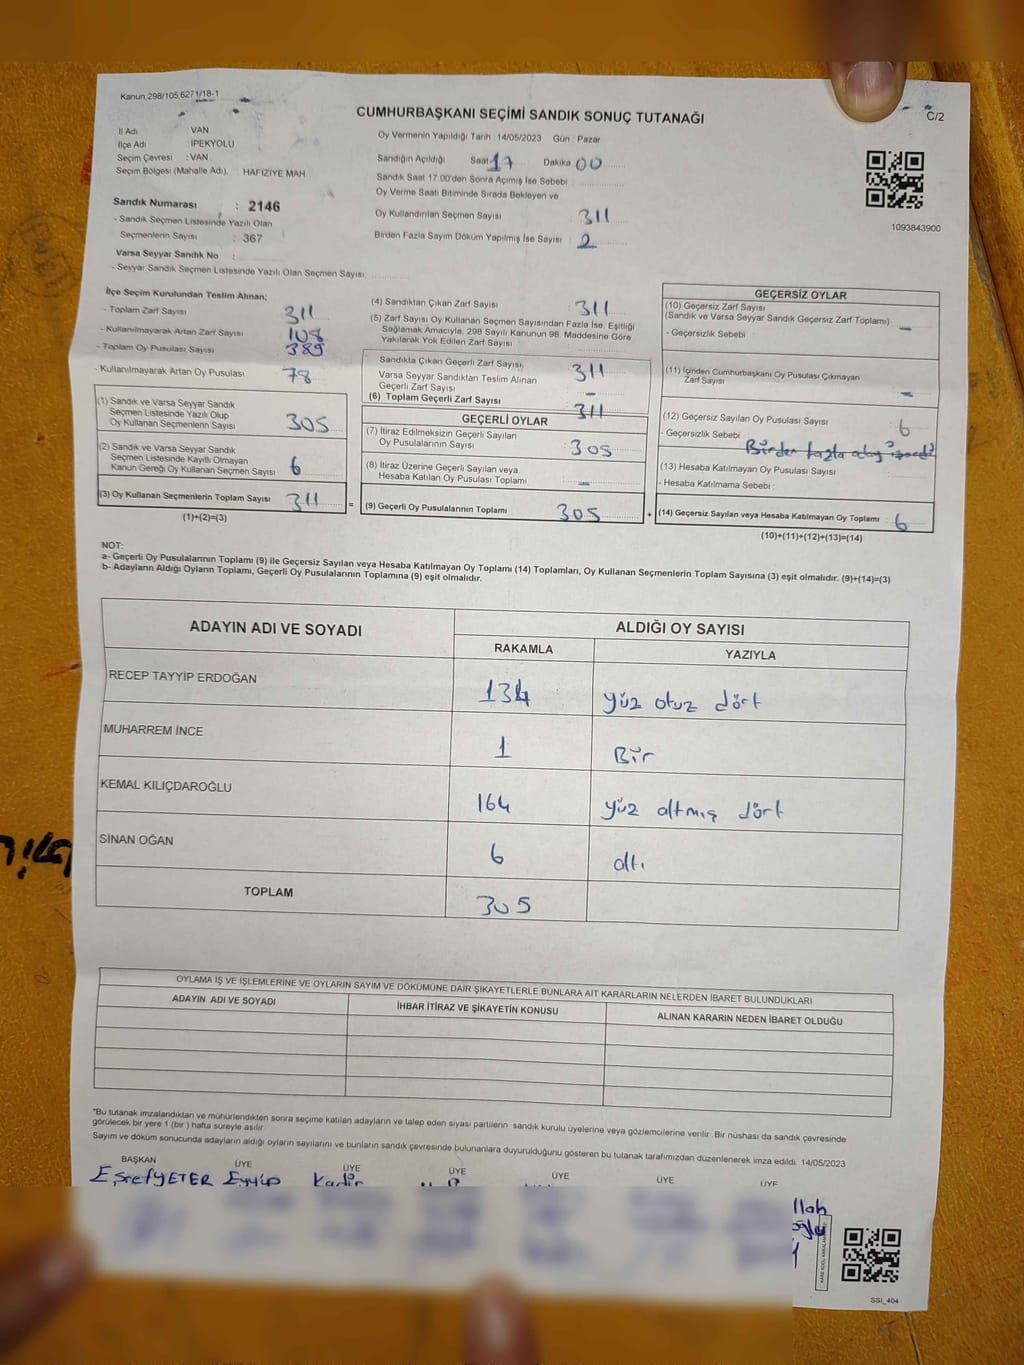 Kanun,298/105,6271/18-1
C/2
CUMHURBAŞKANI SEÇİMİ SANDIK SONUÇ TUTANAĞI
İl Adı : VAN
İlçe Adı : İPEKYOLU
Seçim Çevresi : VAN
Seçim Bölgesi (Mahalle Adı). HAFIZİYE MAH.
Oy Vermenin Yapıldığı Tarih :14/05/2023 Gün : Pazar
Sandığın Açıldığı Saat 17 Dakika 00
Sandık Saat 17.00'den Sonra Açımış İse Sebebi
Oy Verme Saati Bitiminde Sırada Bekleyen ve
Oy Kullandırılan Seçmen Sayısı : 311
Birden Fazla Sayım Döküm Yapılmış İse Sayısı : 2
1093843900
Sandık Numarası : 2146
- Sandık Seçmen Listesinde Yazılı Olan
Seçmenlerin Sayısı : 367
Varsa Seyyar Sandık No :
- Seyyar Sandık Seçmen Listesinde Yazılı Olan Seçmen Sayısı:
İlçe Seçim Kurulundan Teslim Alınan;
- Toplam Zarf Sayısı : 311
- Kullanılmayarak Artan Zarf Sayısı : 108
- Toplam Oy Pusulası Sayısı 389
- Kullanılmayarak Artan Oy Pusulası 78
(1) Sandık ve Varsa Seyyar Sandık
Seçmen Listesinde Yazılı Olup
Oy Kullanan Seçmenlerin Sayısı 305
(2) Sandık ve Varsa Seyyar Sandık
Seçmen Listesinde Kayıtlı Olmayan
Kanun Gereği Oy Kullanan Seçmen Sayısı 6
(3) Oy Kullanan Seçmenlerin Toplam Sayısı 311
(1)+(2)=(3)
=
(4) Sandıktan Çıkan Zarf Sayısı : 311
(5) Zarf Sayısı Oy Kullanan Seçmen Sayısından Fazla İse, Eşitliği
Sağlamak Amacıyla, 298 Sayılı Kanunun 98. Maddesine Göre
Yakılarak Yok Edilen Zarf Sayısı
Sandıkta Çıkan Geçerli Zarf Sayısı 311
Varsa Seyyar Sandıktan Teslim Alınan
Geçerli Zarf Sayısı –
(6) Toplam Geçerli Zarf Sayısı : 311
GEÇERLİ OYLAR
(7) İtiraz Edilmeksizin Geçerli Sayılan
Oy Pusulalarının Sayısı : 305
(8) İtiraz Üzerine Geçerli Sayılan veya
Hesaba Katılan Oy Pusulası Toplamı –
(9) Geçerli Oy Pusulalarının Toplamı 305
+
GEÇERSİZ OYLAR
(10) Geçersiz Zarf Sayısı
(Sandık ve Varsa Seyyar Sandık Geçersiz Zarf Toplamı) –
- Geçersizlik Sebebi
(11) İçinden Cumhurbaşkanı Oy Pusulası Çıkmayan
Zarf Sayısı –
(12) Geçersiz Sayılan Oy Pusulası Sayısı : 6
- Geçersizlik Sebebi Birden fazla aday
(13) Hesaba Katılmayan Oy Pusulası Sayısı
- Hesaba Katılmama Sebebi :
(14) Geçersiz Sayılan veya Hesaba Katılmayan Oy Toplamı : 6
(10)+(11)+(12)+(13)=(14)
NOT:
a- Geçerli Oy Pusulalarının Toplamı (9) ile Geçersiz Sayılan veya Hesaba Katılmayan Oy Toplamı (14) Toplamları, Oy Kullanan Seçmenlerin Toplam Sayısına (3) eşit olmalıdır. (9)+(14)=(3)
b- Adayların Aldığı Oyların Toplamı, Geçerli Oy Pusulalarının Toplamına (9) eşit olmalıdır.
ADAYIN ADI VE SOYADI ALDIĞI OY SAYISI
RAKAMLA YAZIYLA
RECEP TAYYİP ERDOĞAN 134 yüz otuz dört
MUHARREM İNCE 1 Bir
KEMAL KILIÇDAROĞLU 164 yüz altmış dört
SİNAN OĞAN 6 altı
TOPLAM 305
OYLAMA İŞ VE İŞLEMLERİNE VE OYLARIN SAYIM VE DÖKÜMÜNE DAİR ŞİKAYETLERLE BUNLARA AİT KARARLARIN NELERDEN İBARET BULUNDUKLARI
ADAYIN ADI VE SOYADI İHBAR İTİRAZ VE ŞİKAYETİN KONUSU ALINAN KARARIN NEDEN İBARET OLDUĞU
"Bu tutanak imzalandıktan ve mühürlendikten sonra seçime katılan adayların ve talep eden siyasi partilerin sandık kurulu üyelerine veya gözlemcilerine verilir. Bir nüshası da sandık çevresinde
görülecek bir yere 1 (bir ) hafta süreyle asılır.
Sayım ve döküm sonucunda adayların aldığı oyların sayılarını ve bunların sandık çevresinde bulunanlara duyurulduğunu gösteren bu tutanak tarafımızdan düzenlenerek imza edildi. 14/05/2023
BAŞKAN ÜYE ÜYE ÜYE ÜYE ÜYE ÜYE
Eşref YETER Eyyüp Kadir
llah
SSI_404